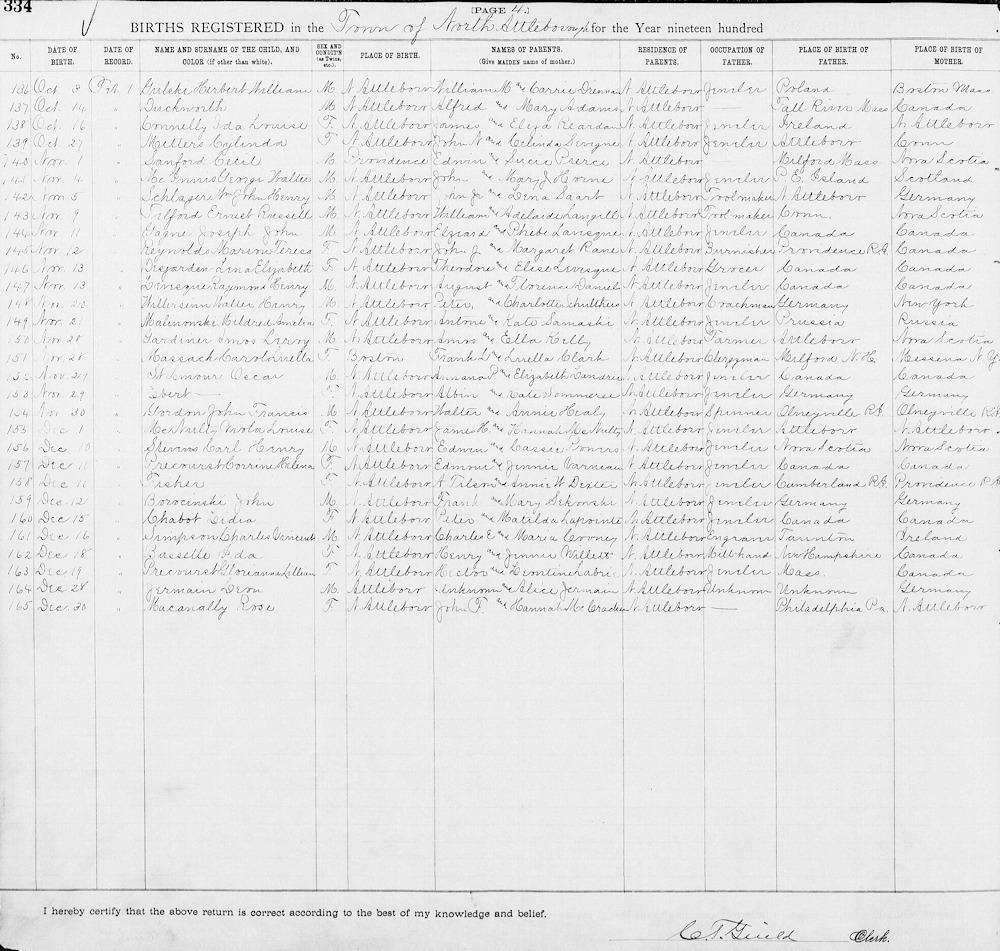 334
[PAGE 4.]
BIRTHS REGISTERED in the Town of North Attleborough for the Year nineteen hundred
No. DATE OF BIRTH. DATE OF RECORD. NAME AND SURNAME OF THE CHILD, AND COLOR (if other than white). SEX AND CONDIT'N (as Twins, etc.). PLACE OF BIRTH. NAMES OF PARENTS. (Give MAIDEN name of mother.) RESIDENCE OF PARENTS. OCCUPATION OF FATHER. PLACE OF BIRTH OF FATHER. PLACE OF BIRTH OF MOTHER.
136 Oct. 8 Feb. 1 Gulski Herbert William M N. Attleboro William M and Carrie N. Attleboro Jeweler Poland Boston Mass
137 Oct. 14 " Duckworth M N. Attleboro Alfred and Mary Adams N. Attleboro — Fall River Mass Canada
138 Oct. 16 " Connelly Ida Louise F N. Attleboro James and Eliza Reardon N. Attleboro Jeweler Ireland N. Attleboro
139 Oct. 27 " Cylinda F N. Attleboro John N and Celinda N. Attleboro Jeweler Attleboro Conn
140 Nov. 1 " Sanford Cecil M Providence Edwin and Lucie Pierce N. Attleboro Milford Mass Nova Scotia
141 Nov. 4 " McInnis George Walter M N. Attleboro John and Mary J. Horne N. Attleboro Jeweler P. E. Island Scotland
142 Nov 5 " Schlager Wm John Henry M N. Attleboro John Jr and Lena Saart N. Attleboro Toolmaker N. Attleboro Germany
143 Nov. 9 " Telford Ernest Russell M N. Attleboro William and Adelaide Langille N. Attleboro Toolmaker Conn. Nova Scotia
144 Nov. 11 " Gagne Joseph John M N. Attleboro Elzeard and Phebe N. Attleboro Jeweler Canada Canada
145 Nov. 12 " Reynolds Marion Teresa F N. Attleboro John J. and Margaret Kane N. Attleboro Burnisher Providence R.I. Canada
146 Nov. 13 " Desjarden Lena Elizabeth F N. Attleboro Theodore and Elise Levesque N. Attleboro Grocer Canada Canada
147 Nov. 13 " Levesque Raymond Henry M N. Attleboro August and Florence Daniel N. Attleboro Jeweler Canada Canada
148 Nov. 20 " Walter Henry M N. Attleboro Peter and Charlotte Schulthies N. Attleboro Coachman Germany New York
149 Nov. 21 " Malinowski Mildred Amelia F N. Attleboro Antone and Kate Samaski N. Attleboro Jeweler Prussia Russia
150 Nov 28 " Gardiner Amos Leroy M N. Attleboro Amos and Etta Kelly N. Attleboro Farmer Attleboro Nova Scotia
151 Nov. 28 " Massack Carolouella F Boston Frank L and Luella Clark N. Attleboro Clergyman Milford N.H. Messena N.Y.
152 Nov. 29 " St Amour Oscar M N. Attleboro and Elizabeth N. Attleboro Jeweler Canada Canada
153 Nov. 29 " Ebert — F N. Attleboro Albin and Kate N. Attleboro Jeweler Germany Germany
154 Nov. 30 " Gordon John Francis M N. Attleboro Walter and Annie Healy N. Attleboro Spinner Olneyville R.I. Olneyville R.I.
155 Dec 1 " McNulty Viola Louise F N. Attleboro James H. and Hannah McNulty N. Attleboro Jeweler Attleboro N. Attleboro
156 Dec 10 " Stevens Karl Henry M N. Attleboro Edwin and Cassie N. Attleboro Jeweler Nova Scotia Nova Scotia
157 Dec 11 " Precourt Corrine Helena F N. Attleboro Edmond and Jennie Varneau N. Attleboro Jeweler Canada Canada
158 Dec 11 " Fisher F N. Attleboro A Tilson and Annie W Dexter N. Attleboro Jeweler Cumberland R.I. Providence R.I.
159 Dec. 12 " Borocinski John M N. Attleboro Frank and Mary N. Attleboro Jeweler Germany Germany
160 Dec. 15 " Chabot Lidia F N. Attleboro Peter and Matilda Lapointe N. Attleboro Jeweler Canada Canada
161 Dec 16 " Simpson Charles Vincent M N. Attleboro Charles E. and Maria Cooney N. Attleboro Engraver Taunton Ireland
162 Dec 18 " Basselle Ida F N. Attleboro Henry and Jennie Willett N. Attleboro Mill hand New Hampshire Canada
163 Dec 19 " Precourt Glorianna Lillian F N. Attleboro Hector and N. Attleboro Jeweler Mass. Canada
164 Dec 28 " Jermain Leon M. Attleboro Unknown and Alice Jermain N. Attleboro Unknown Unknown Germany
165 Dec. 30 " Macanally Rose F N. Attleboro John F. and Hannah McCracken N. Attleboro — Philadelphia Pa. N. Attleboro
I hereby certify that the above return is correct according to the best of my knowledge and belief.
Clerk.